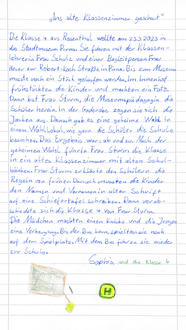 "Ins alte Klassenzimmer geschaut"
Die Klasse 4 aus Rosental wollte am 23.3.2023 in
das Stadtmuseum Pirna. Sie fuhren mit der Klassen-
lehrerin Frau Schulz und einer Begleitperson Frau
der Robert Koch Straße in Pirna. Bis zum Museum
musste noch ein Stück gelaufen werden. Im Innenhof
frühstückten die Kinder und machten ein Foto.
Dann bat Frau Sturm, die Museumspädagogin die
Schüler hinein. In der Garderobe zogen sie sich die
Jacken aus. Danach gab es eine geheime Wahl. In
einem Wahllokal, wie gern die Schüler die Schule
besuchen. Das Ergebnis war: ab und zu. Nach der
geheimen Wahl führte Frau Sturm die Klasse
in ein altes Klassenzimmer mit alten Schul-
bänken. Frau Sturm erklärte den Schülern die
Regeln von früher. Danach mussten die Kinder
den Namen und Vornamen in alter Schrift
auf eine Schiefertafel schreiben. Dann verab-
schiedete sich die Klasse 4 von Frau Sturm.
Die Mädchen machten einen Knicks und die Jungs
eine Verbeugung. Bis der Bus kam, spielten sie noch
auf dem Spielplatz. Mit dem Bus fuhren sie wieder
zur Schule.
und die Klasse 4
H